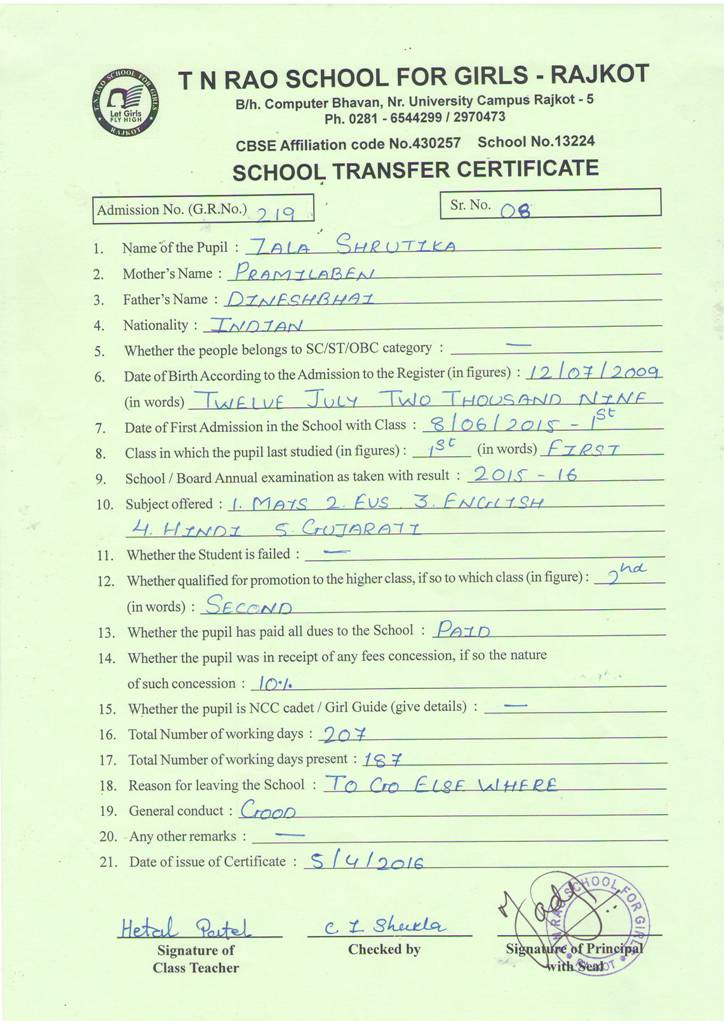 T. N. RAO SCHOOL FOR GIRLS
Let Girls
FLY HIGH
RAJKOT
T N RAO SCHOOL FOR GIRLS - RAJKOT
B/h. Computer Bhavan, Nr. University Campus Rajkot - 5
Ph. 0281 - 6544299 / 2970473
CBSE Affiliation code No.430257 School No.13224
SCHOOL TRANSFER CERTIFICATE
Admission No. (G.R.No.) 219 Sr. No. 08
1. Name of the Pupil : ZALA SHRUTIKA
2. Mother's Name : PRAMILABEN
3. Father's Name : DINESHBHAI
4. Nationality : INDIAN
5. Whether the people belongs to SC/ST/OBC category : —
6. Date of Birth According to the Admission to the Register (in figures) : 12/07/2009
(in words) TWELVE JULY TWO THOUSAND NINE
7. Date of First Admission in the School with Class : 8/06/2015 - 1st
8. Class in which the pupil last studied (in figures) : 1st (in words) FIRST
9. School / Board Annual examination as taken with result : 2015 - 16
10. Subject offered : 1. MATS 2. EVS 3. ENGLISH
4. HINDI 5. GUJARATI
11. Whether the Student is failed : —
12. Whether qualified for promotion to the higher class, if so to which class (in figure) : 2nd
(in words) : SECOND
13. Whether the pupil has paid all dues to the School : PAID
14. Whether the pupil was in receipt of any fees concession, if so the nature
of such concession : 10%
15. Whether the pupil is NCC cadet / Girl Guide (give details) : —
16. Total Number of working days : 207
17. Total Number of working days present : 187
18. Reason for leaving the School : TO GO ELSE WHERE
19. General conduct : GOOD
20. Any other remarks : —
21. Date of issue of Certificate : 5/4/2016
Hetal Patel C I Shukla
Signature of Checked by Signature of Principal
Class Teacher with Seal
T N RAO SCHOOL FOR GIRLS
RAJKOT